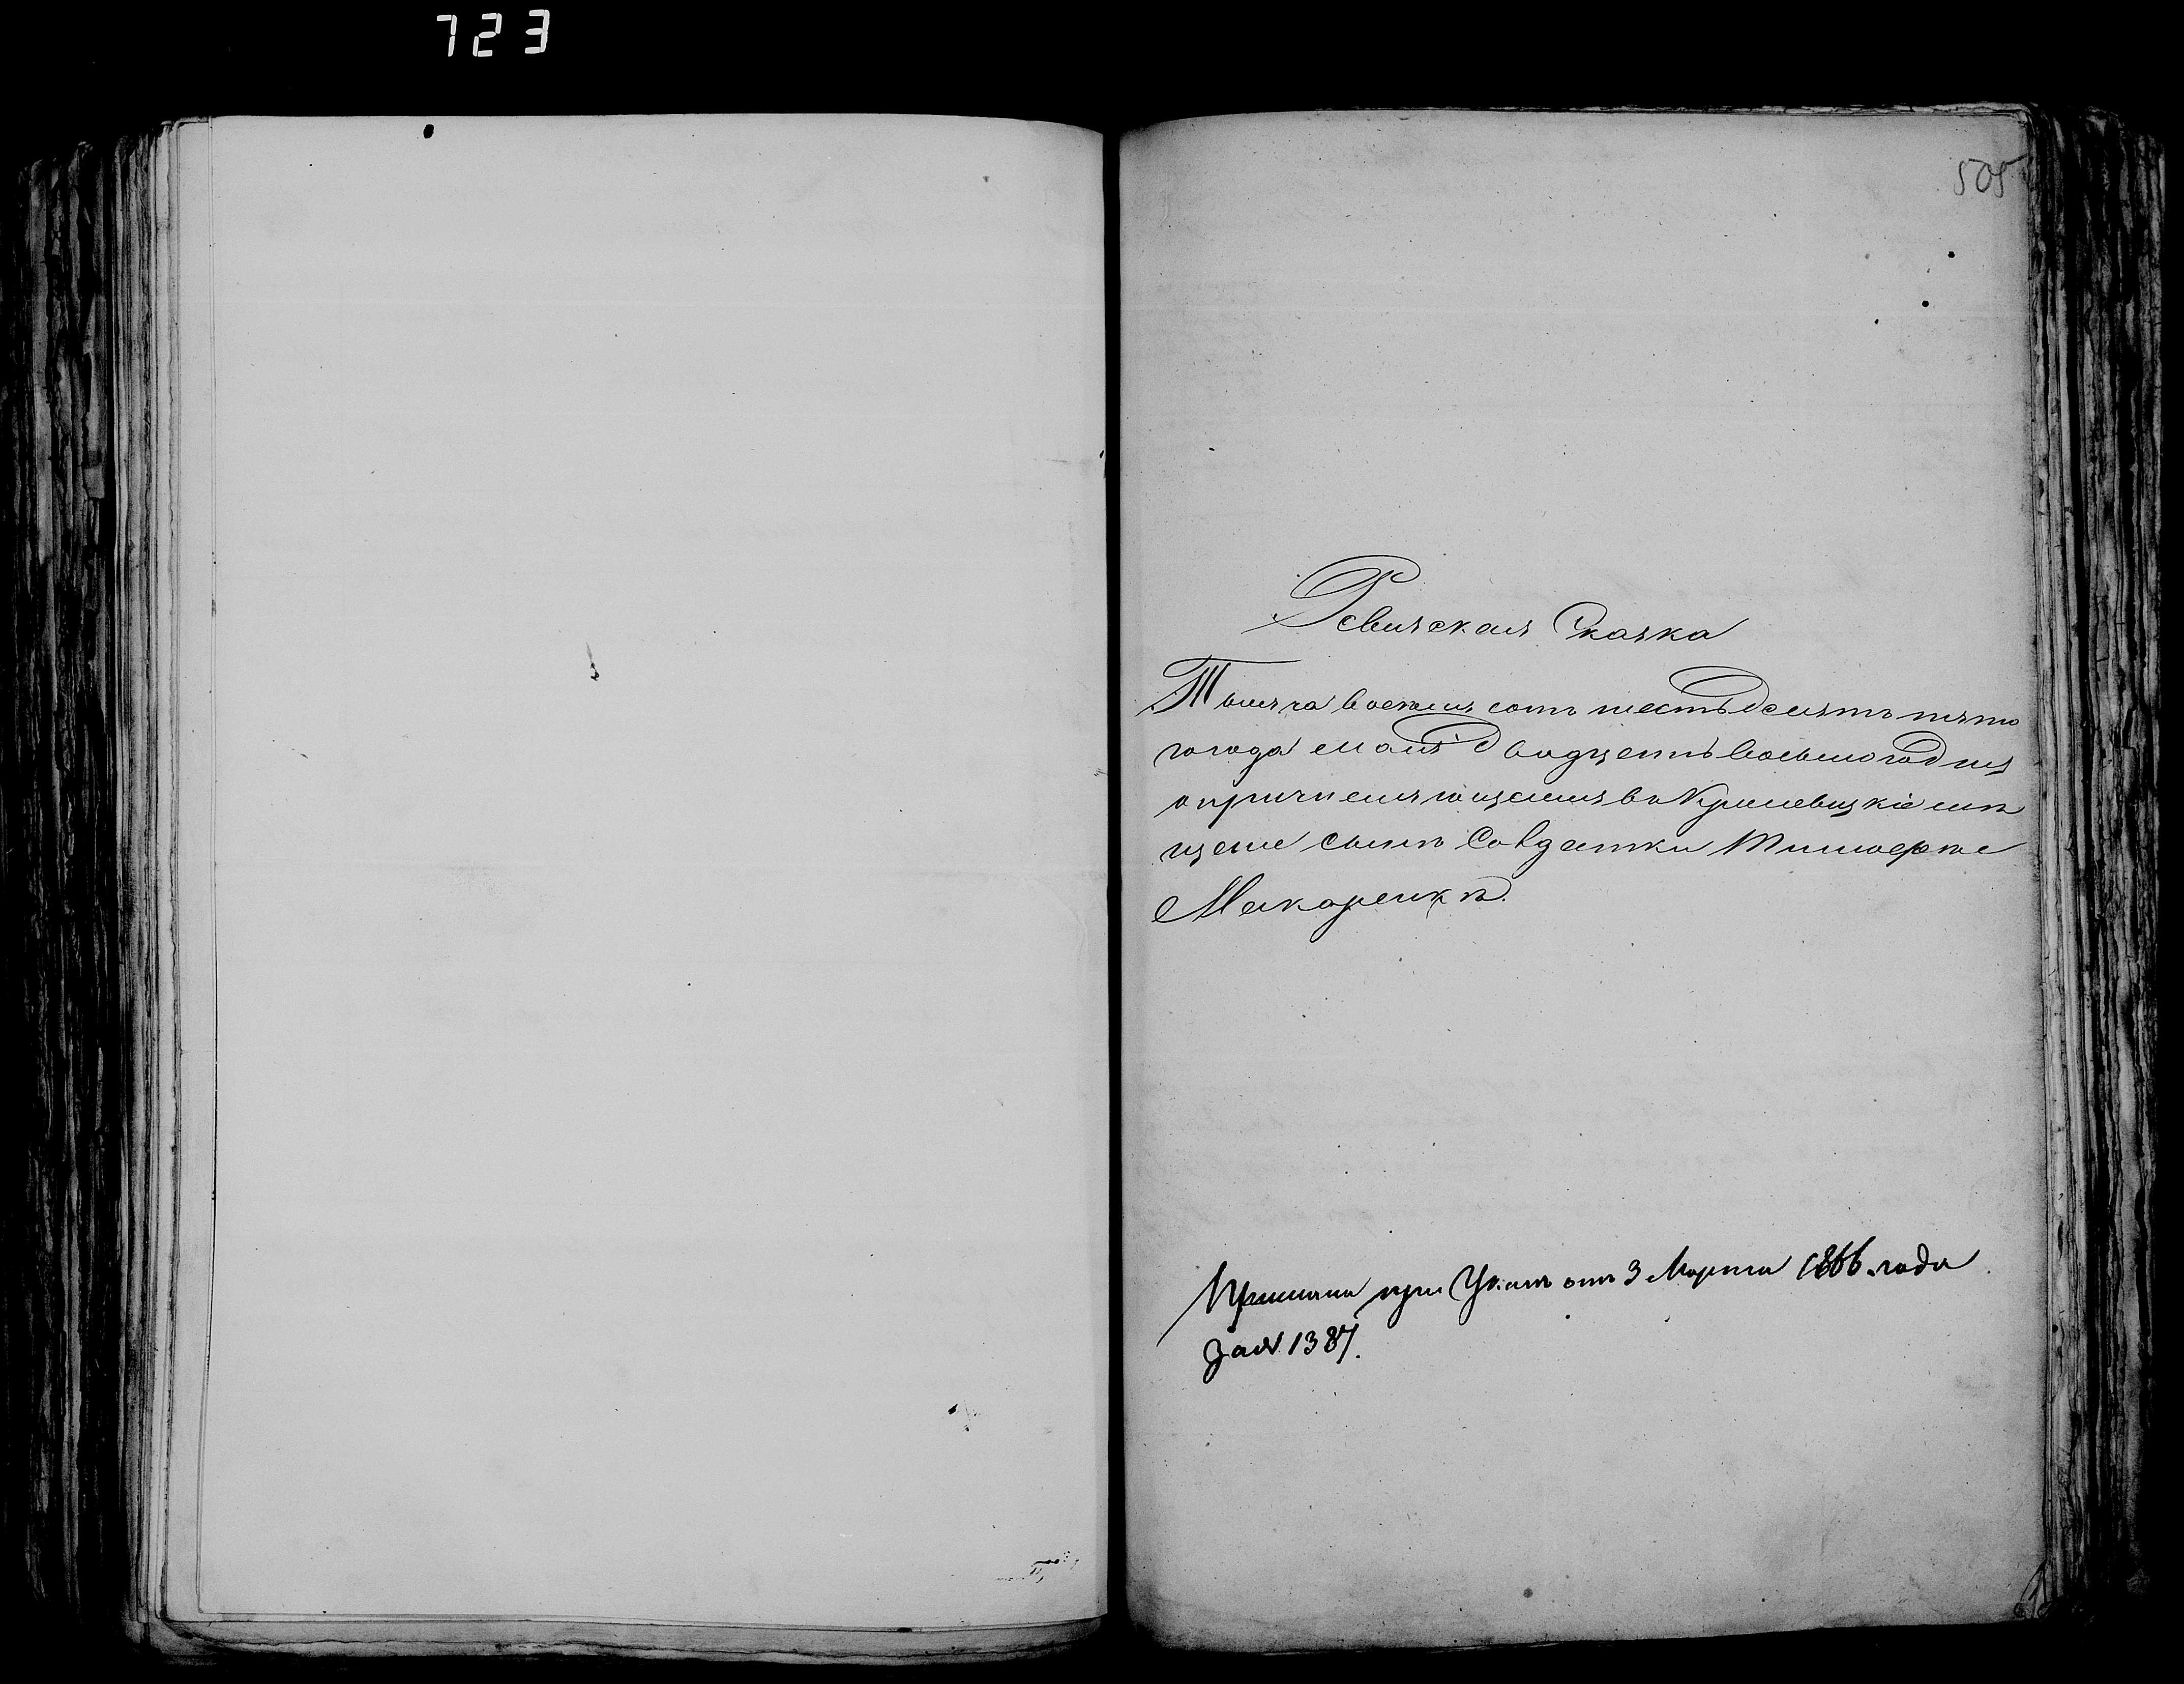 723
505
Ревизская Сказка
Тысяча восемь сотъ шестьдесятъ пято
го года маія двадцать восьмого дня
о причисляющемся въ Кролевецкіе мѣ
щане сынъ Солдатки Тимофее
Макаренкѣ.
Прислана при Указѣ отъ 3 Марта 1866 года
за № 1387.